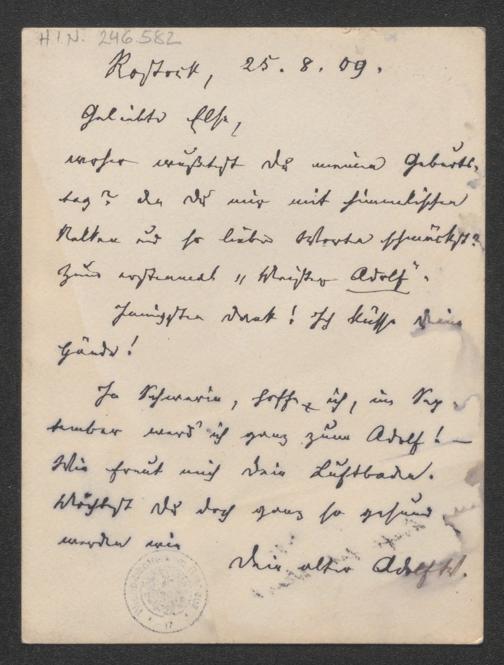 H.I.N. 246.582
Rostock, 25. 8. 09.
Geliebte Else,
woher wußtest du meinen Geburts-
tag? den du mir mit himmlischen
Nelken und so lieben Worten schmückst?
Zum erstenmal „Meister Adolf".
Innigsten Dank! Ich küsse deine
Hände!
In Schwerin, hoffe ich, im Sep-
tember werd' ich ganz zum Adolf! —
Wie freut mich dein Luftbaden.
Möchtest du doch ganz so gesund
werden wie
Dein alter Adolf W.